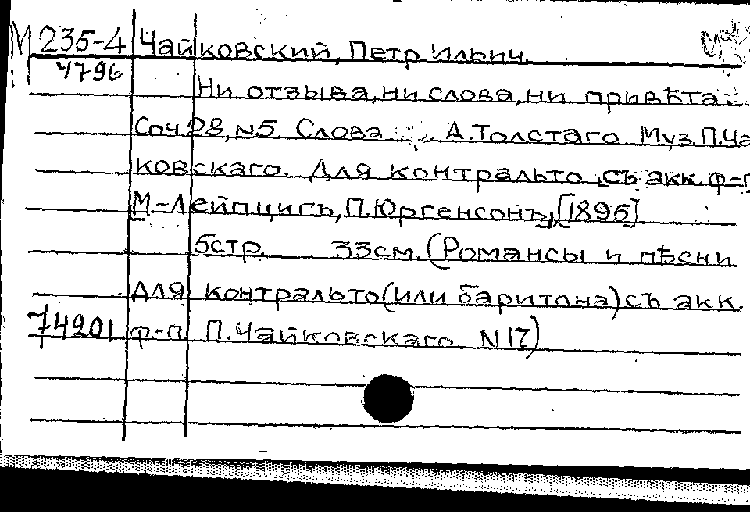 М 235-4 Чайковский, Петр Ильич.
4796
Ни отзыва, ни слова, ни привѣта.
Соч. 28, N5. Слова А. Толстаго. Муз. П. Ча
ковскаго. Для контральто съ акк. ф-п
М.-Лейпцигъ, П. Юргенсонъ, [1895]
5стр. 33см. (Романсы и пѣсни
для контральто (или баритона) съ акк.
74201 ф-п. П. Чайковскаго. N17)